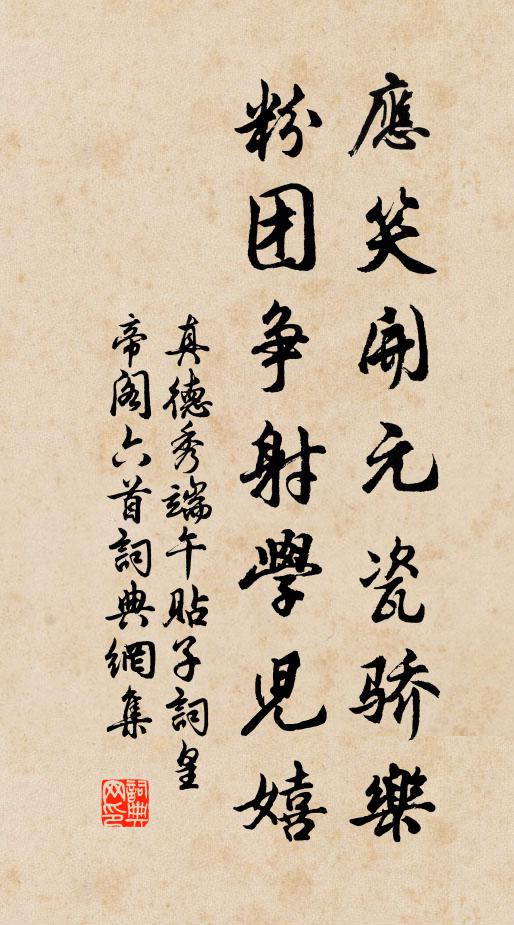 應笑開元瓷骄樂
粉团争射學児嬉
真德秀端午貼子詞皇
帝阁六首詞典網集
詞典网印